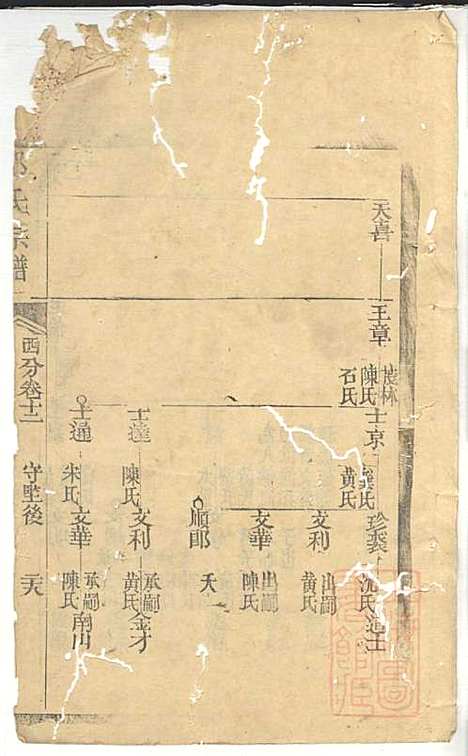 天喜
王章 陳氏 石氏
士京 龔氏 黄氏
珍裘 沈氏 道士
文利 出嗣 黄氏
文華 出嗣 陳氏
順郎 夭
士達 陳氏
文利 承嗣 黄氏 金才
士通 朱氏
文華 承嗣 陳氏 南川
氏宗譜
西分卷十二
守塋後